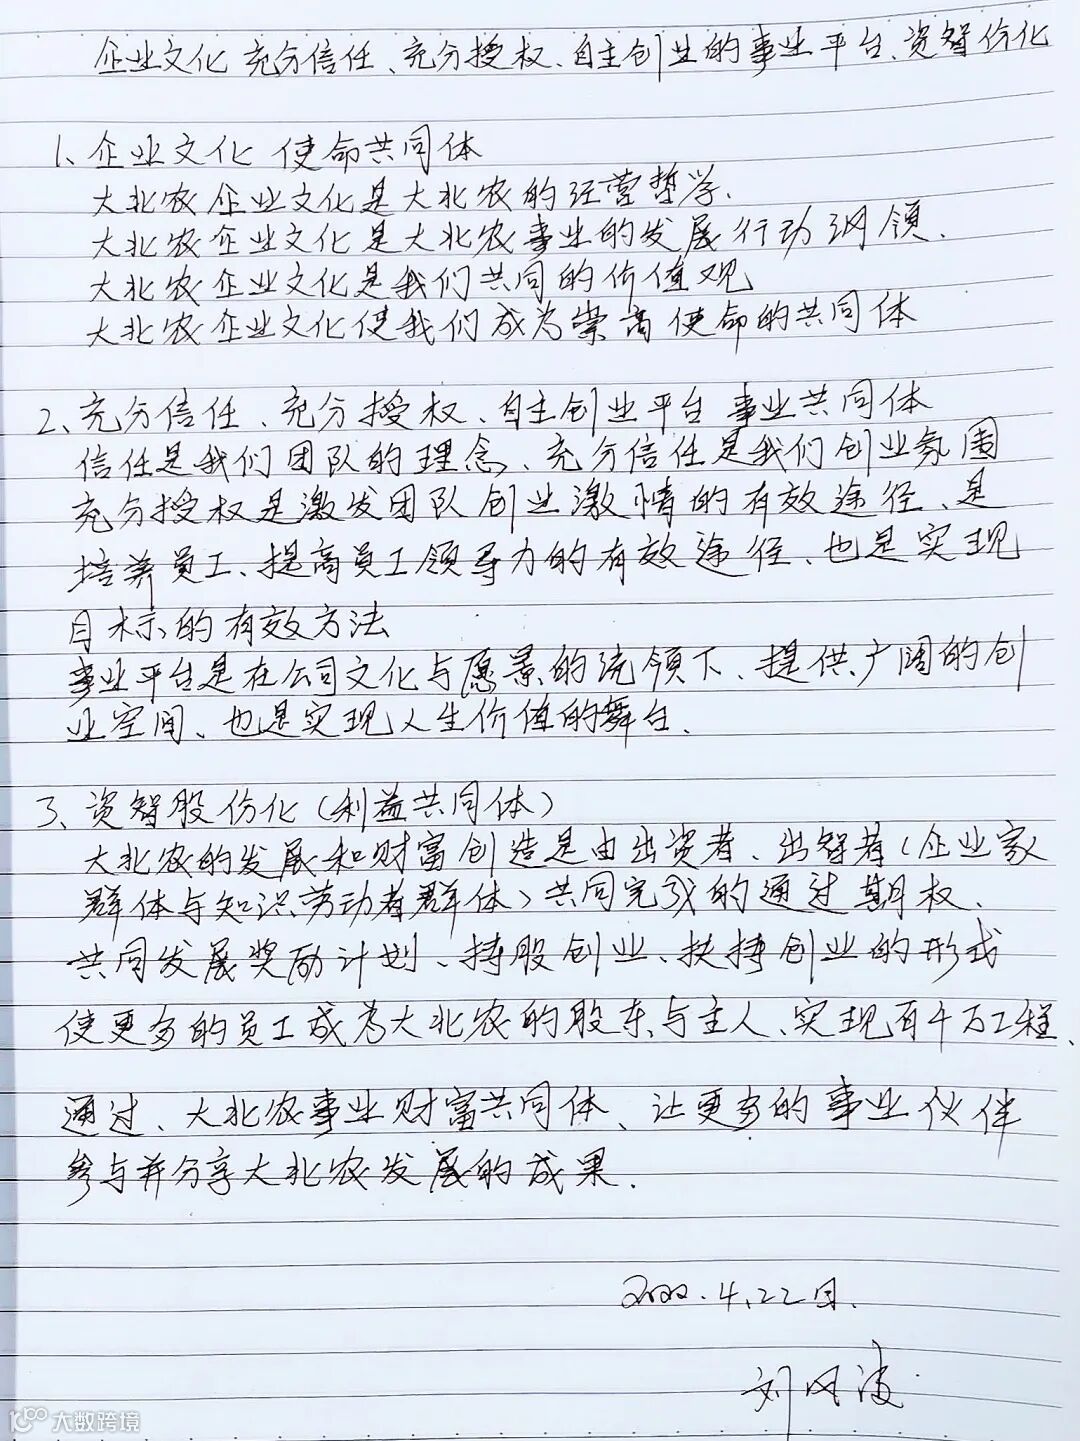 企业文化 充分信任、充分授权、自主创业的事业平台、资智份化
1、企业文化 使命共同体
大北农企业文化是大北农的经营哲学.
大北农企业文化是大北农事业的发展行动纲领.
大北农企业文化是我们共同的价值观
大北农企业文化使我们成为崇高使命的共同体
2、充分信任、充分授权、自主创业平台 事业共同体
信任是我们团队的理念、充分信任是我们创业氛围
充分授权是激发团队创业激情的有效途径、是
培养员工、提高员工领导力的有效途径、也是实现
目标的有效方法
事业平台是在公司文化与愿景的统领下、提供广阔的创
业空间、也是实现人生价值的舞台.
3、资智股份化(利益共同体)
大北农的发展和财富创造是由出资者、出智者(企业家
群体与知识劳动者群体)共同完成的通过期权、
共同发展奖励计划、持股创业、扶持创业的形式
使更多的员工成为大北农的股东与主人、实现百千万工程、
通过、大北农事业财富共同体、让更多的事业伙伴
参与并分享大北农发展的成果.
2022.4.22日.
刘风波
大数跨境